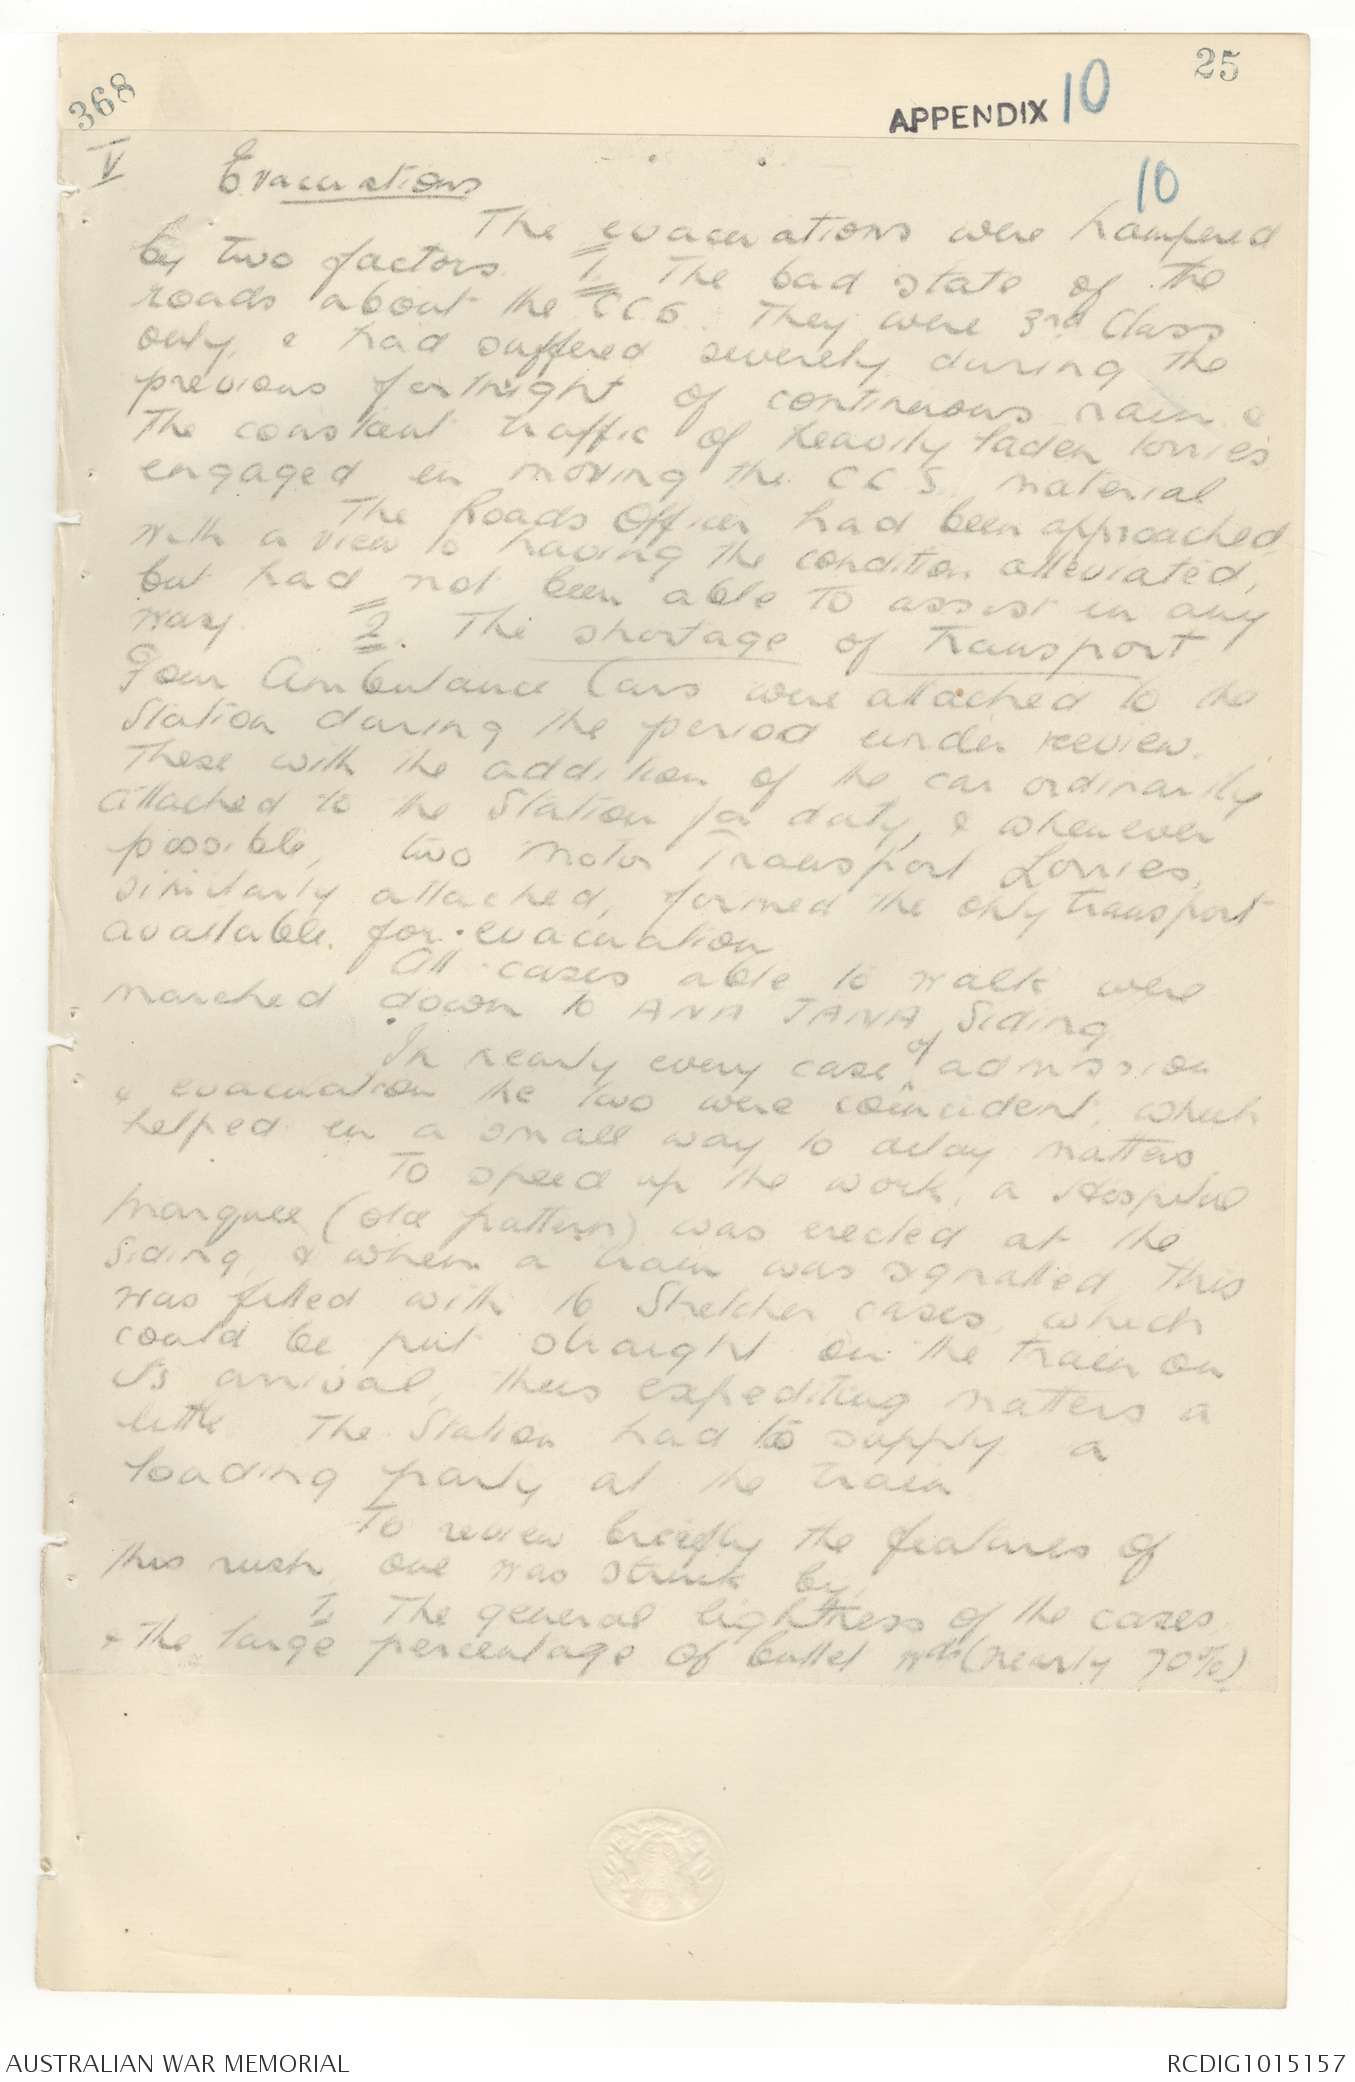 25
368
APPENDIX 10
V
Evacuations
10
The evacuations were hampered
by two factors 1. The bad state of the
roads about the CCS. They were 3rd Class
only, & had suffered severely during the
previous fortnight of continuous rain &
the constant traffic of heavily laden lorries
engaged in moving the C C S. material
The Roads Officer had been approached
with a view to having the condition alleviated,
but had not been able to assist in any
way. 2. The shortage of Transport
Four Ambulance Cars were attached to the
Station during the period under review.
These with the addition of the car ordinarily
attached to the Station for duty, & whenever
possible, two Motor Transport Lorries,
similarly attached, formed the only transport
available for evacuation
All cases able to walk were
marched down to ANA JANA Siding
In nearly every case of admission
& evacuation the two were coincident, which
helped in a small way to delay matters.
To speed up the work, a Hospital
Marquee (old pattern) was erected at the
Siding, & when a train was signalled, this
was filled with 16 Stretcher cases, which
could be put straight on the train on
its arrival, thus expediting matters a
little The Station had to supply a
loading party at the train
To review briefly the features of
this rush, one was struck by,
1. The general lightness of the cases,
& the large percentage of bullet wds (nearly 70%)
AUSTRALIAN WAR MEMORIAL
RCDIG1015157